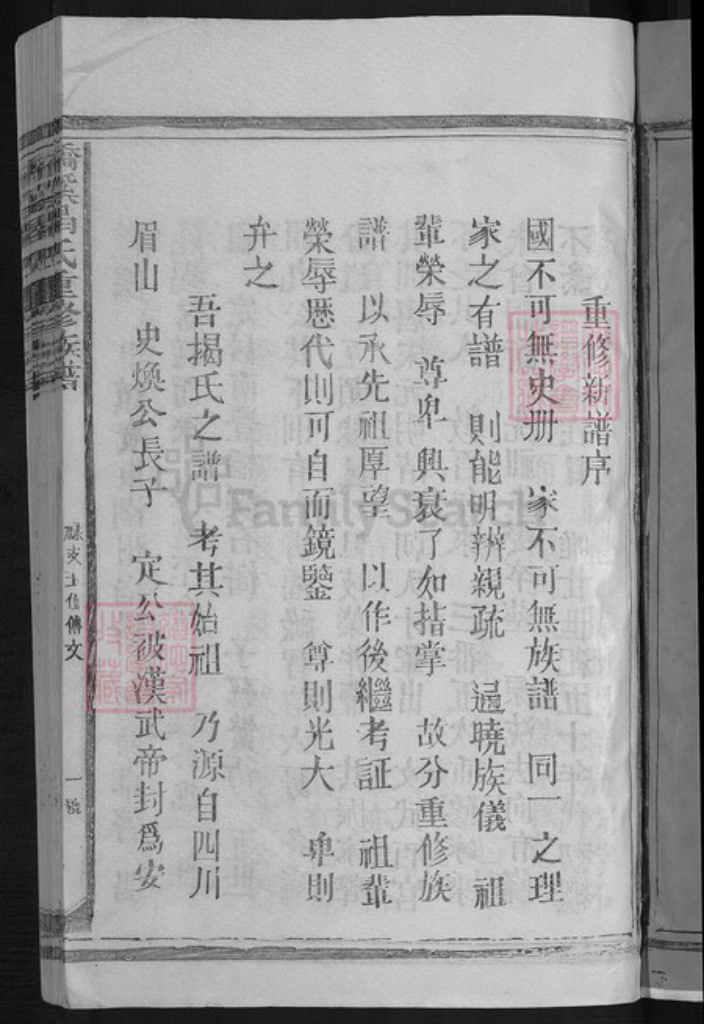 重修新譜序
國不可無史册 家不可無族譜 同一之理
家之有譜 則能明辨親疏 通曉族儀 祖
輩榮辱 尊卑興衰了如指掌 故分重修族
譜 以承先祖厚望 以作後繼考証 祖輩
榮辱歷代則可自而鏡鑒 尊則光大 卑則
弃之
吾揭氏之譜 考其始祖 乃源自四川
眉山 史煥公長子 定公被漢武帝封爲安
氏重修族譜
傳文
一
FamilySearch